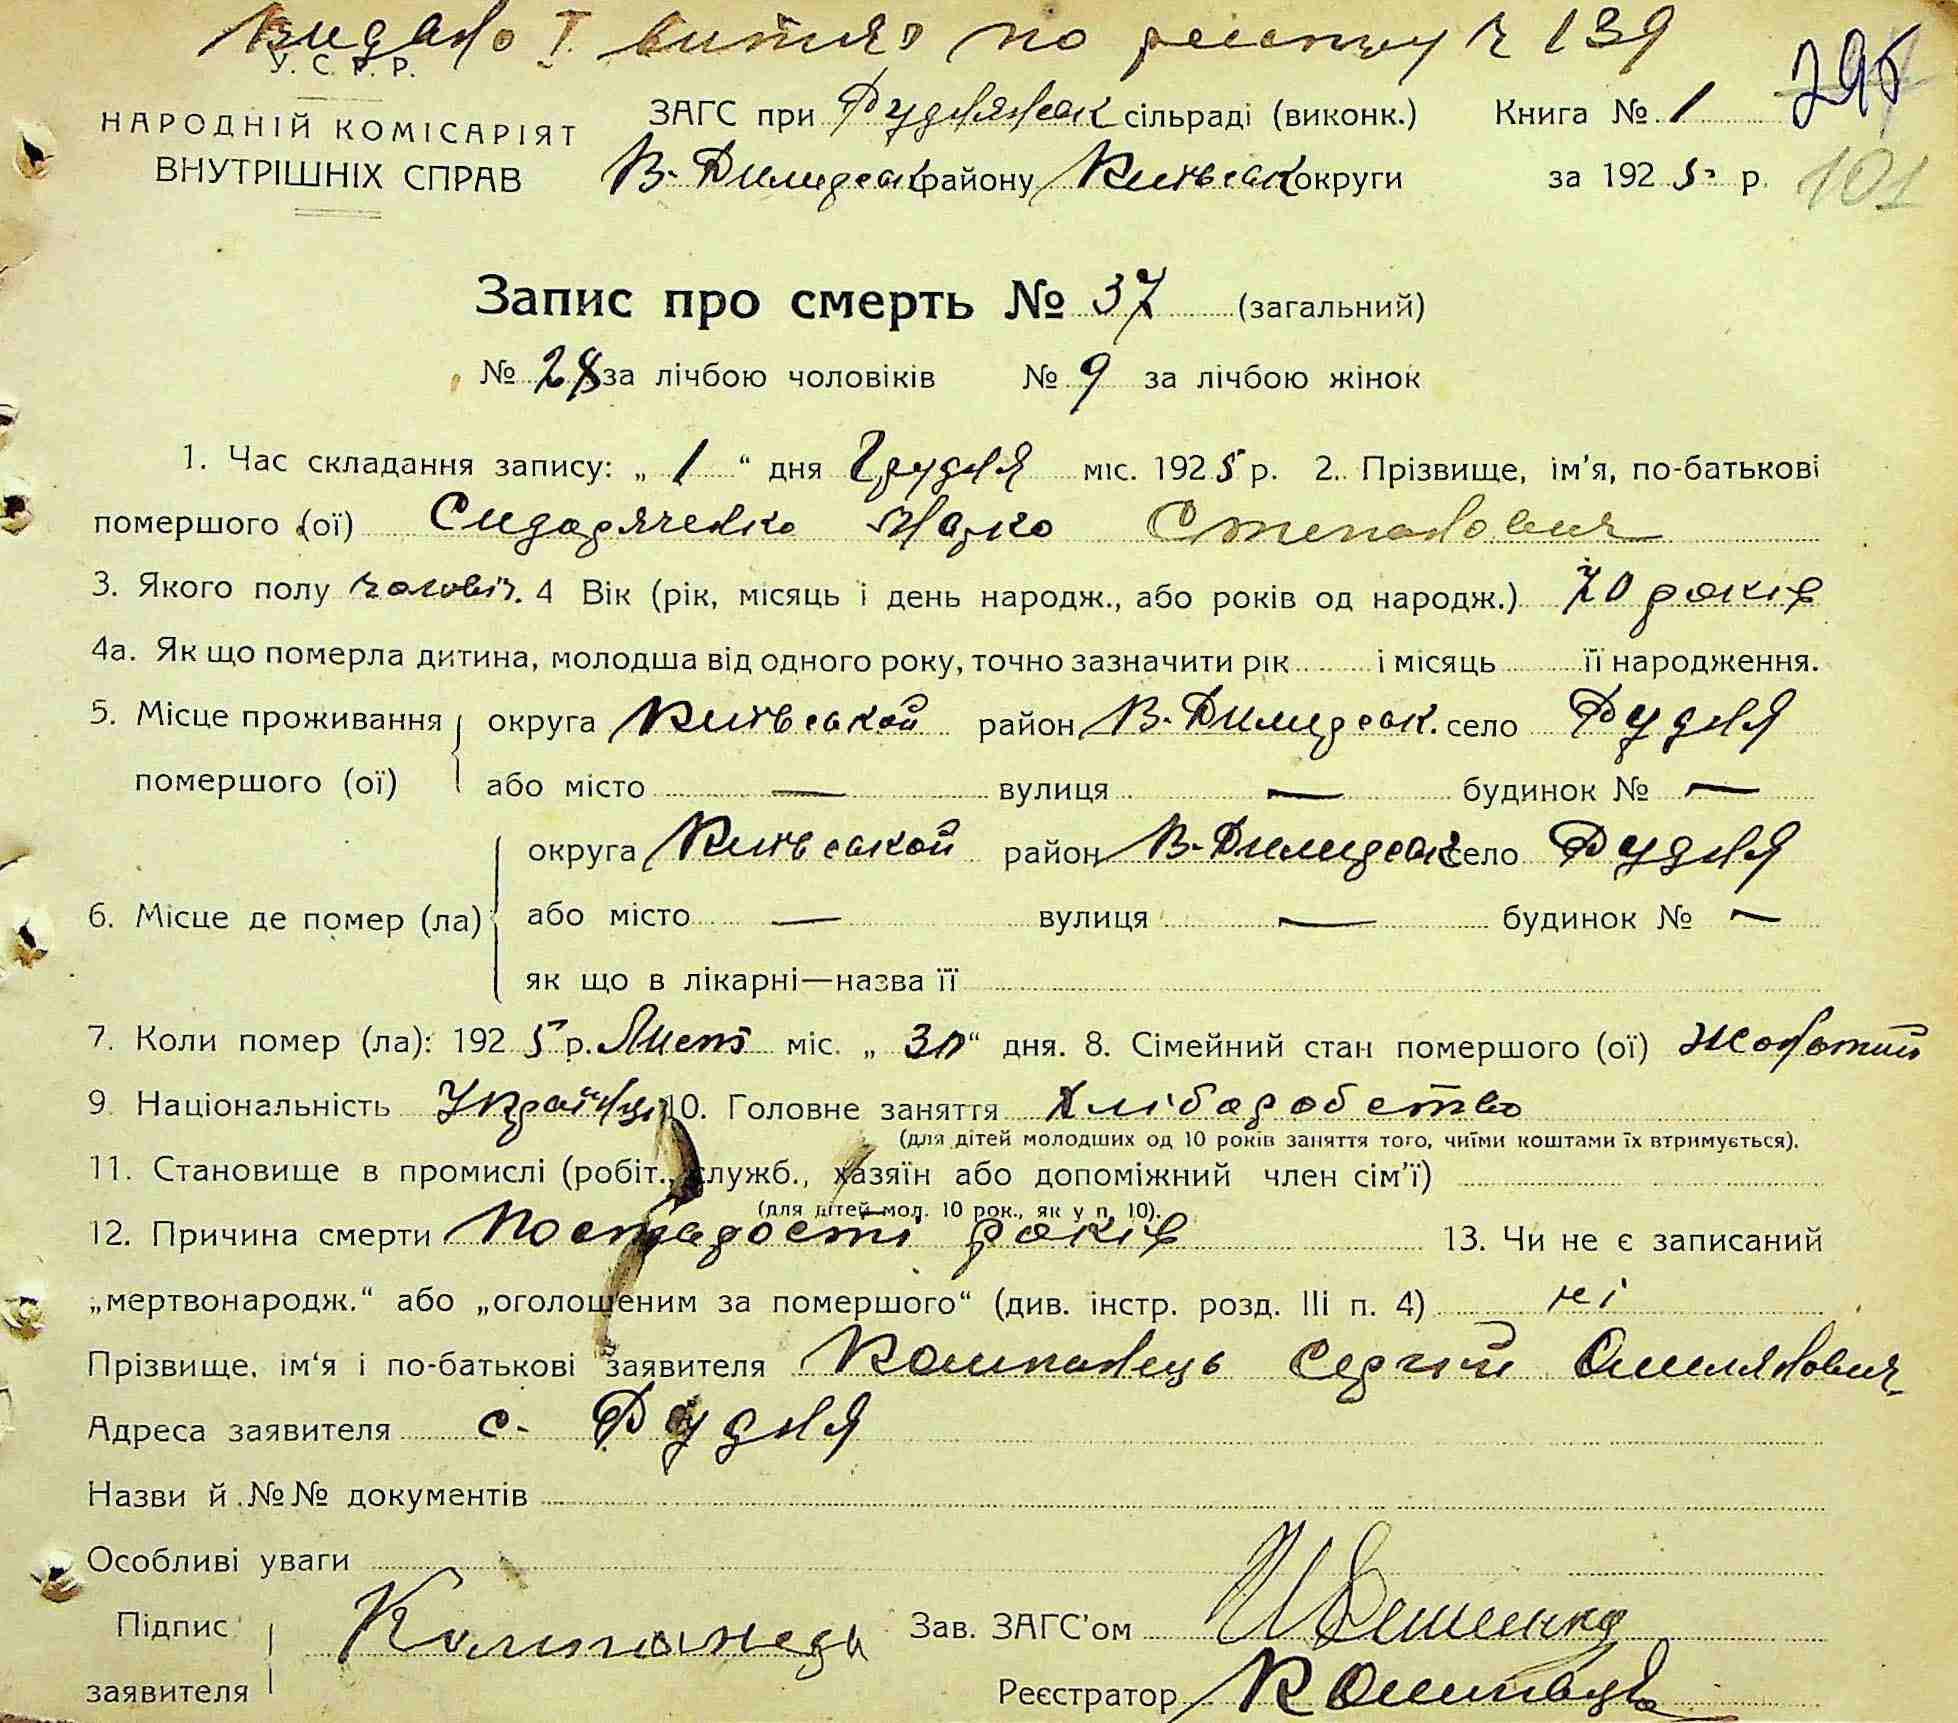 Видано І витяг по реєстру ч 139
У. С. Р. Р.
НАРОДНІЙ КОМІСАРІЯТ
ВНУТРІШНІХ СПРАВ
ЗАГС при Руднянськ сільраді (виконк.) Книга № 1
В-Димерськ району Київськ округи за 1925 р.
101
Запис про смерть № 37 (загальний)
№ 28 за лічбою чоловіків № 9 за лічбою жінок
1. Час складання запису: „ 1 “ дня Грудня міс. 1925 р. 2. Прізвище, ім'я, по-батькові
помершого (ої) Сидоряченко Марко Степанович
3. Якого полу чоловіч. 4 Вік (рік, місяць і день народж., або років од народж.) 70 років
4а. Як що померла дитина, молодша від одного року, точно зазначити рік і місяць її народження.
5. Місце проживання помершого (ої) округа Київської район В-Димерськ. село Рудня
або місто — вулиця — будинок № —
6. Місце де помер (ла) округа Київської район В-Димерськ село Рудня
або місто — вулиця — будинок № —
як що в лікарні—назва її
7. Коли помер (ла): 1925 р. Лист міс. „ 30 “ дня. 8. Сімейний стан помершого (ої) жонатий
9 Національність Україн 10. Головне заняття хліборобство
(для дітей молодших од 10 років заняття того, чиїми коштами їх втримується).
11. Становище в промислі (робіт., служб., хазяїн або допоміжний член сім'ї)
(для дітей мол. 10 рок., як у п. 10).
12. Причина смерти По старості років 13. Чи не є записаний
„мертвонародж.“ або „оголошеним за помершого“ (див. інстр. розд. III п. 4) ні
Прізвище, ім'я і по-батькові заявителя Компанець Сергій Омелянович
Адреса заявителя с. Рудня
Назви й №№ документів
Особливі уваги
Підпис заявителя Компанець Зав. ЗАГС'ом
Реєстратор